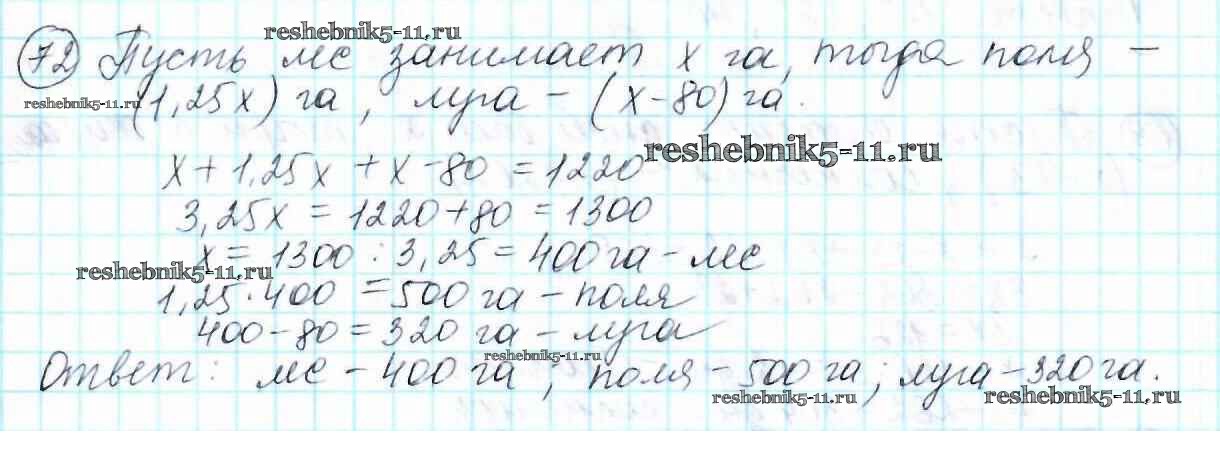 reshebnik5-11.ru
72 Пусть лес занимает x га, тогда поля –
reshebnik5-11.ru
(1,25x) га, луга – (x-80) га.
reshebnik5-11.ru
x + 1,25x + x - 80 = 1220
3,25x = 1220+80 = 1300
x = 1300 : 3,25 = 400 га - лес
reshebnik5-11.ru
1,25 · 400 = 500 га - поля
400 - 80 = 320 га - луга
reshebnik5-11.ru
Ответ: лес - 400 га; поля - 500 га; луга - 320 га.
reshebnik5-11.ru
reshebnik5-11.ru